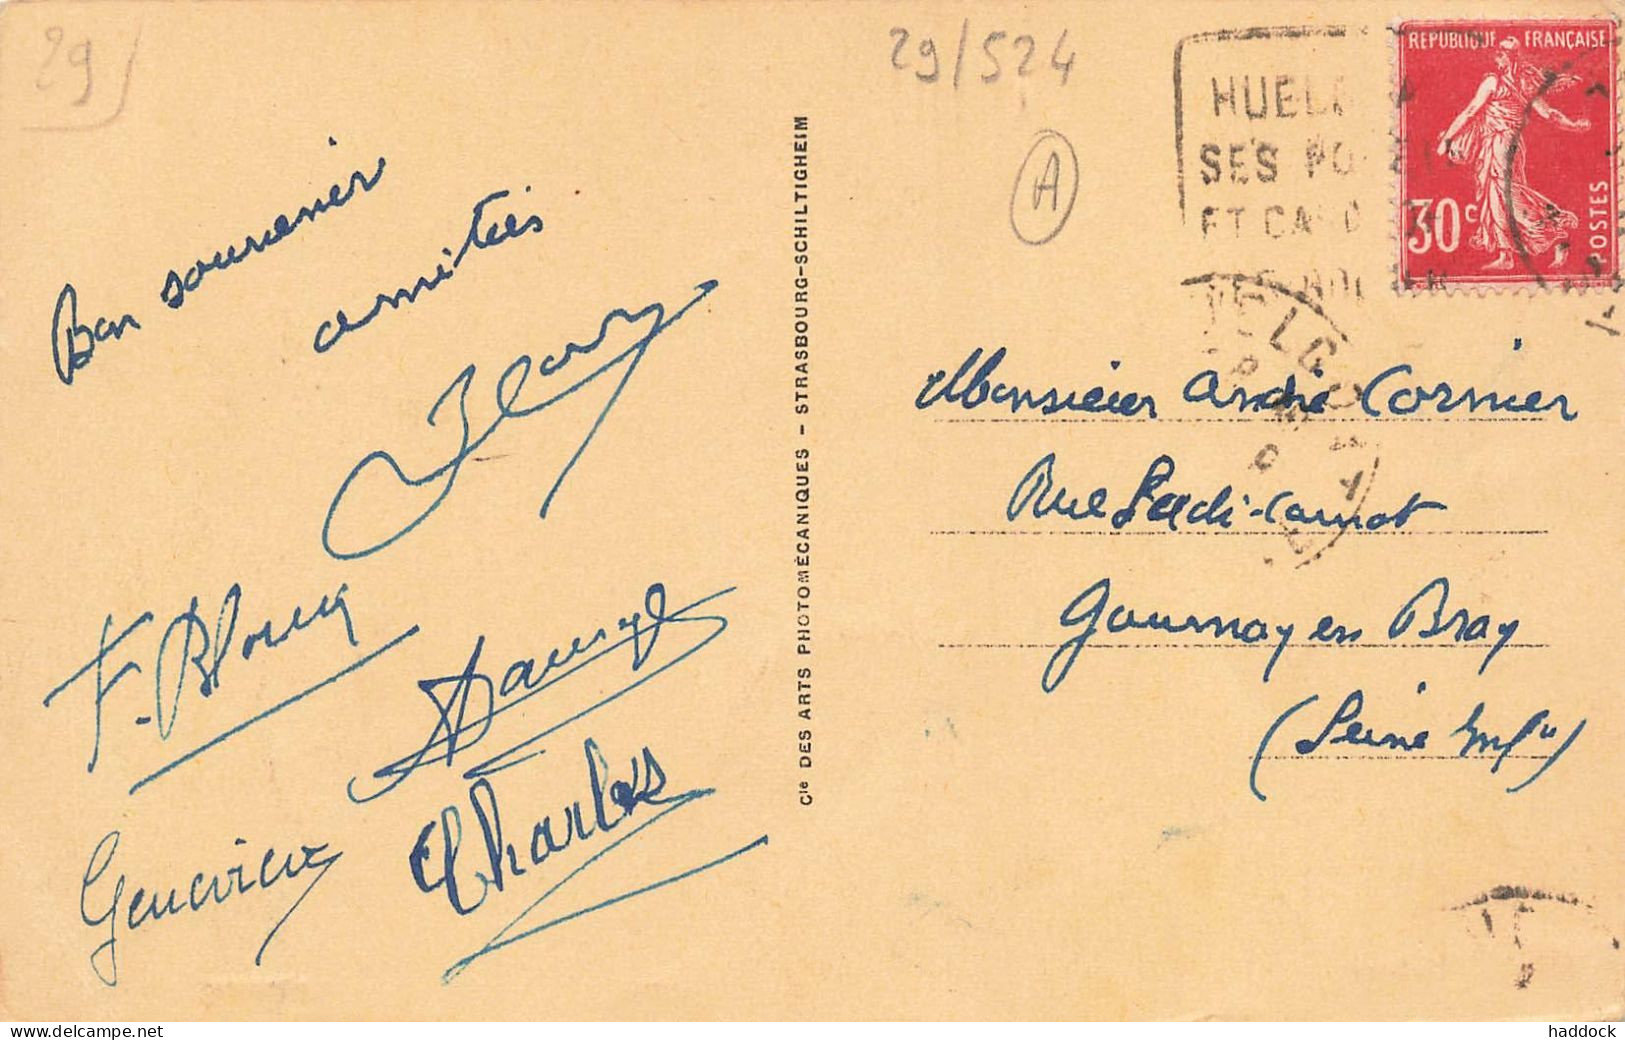 29/
29/524
A
RÉPUBLIQUE FRANÇAISE
30c
POSTES
HUEL
SES PO
ET CA
HUELGOAT
Bon souvenir
amitiés
Monsieur André Cormier
Rue Sadi-Carnot
Gournay en Bray
(Seine Infre)
Geneviève
Charles
Cie DES ARTS PHOTOMÉCANIQUES - STRASBOURG-SCHILTIGHEIM
haddock